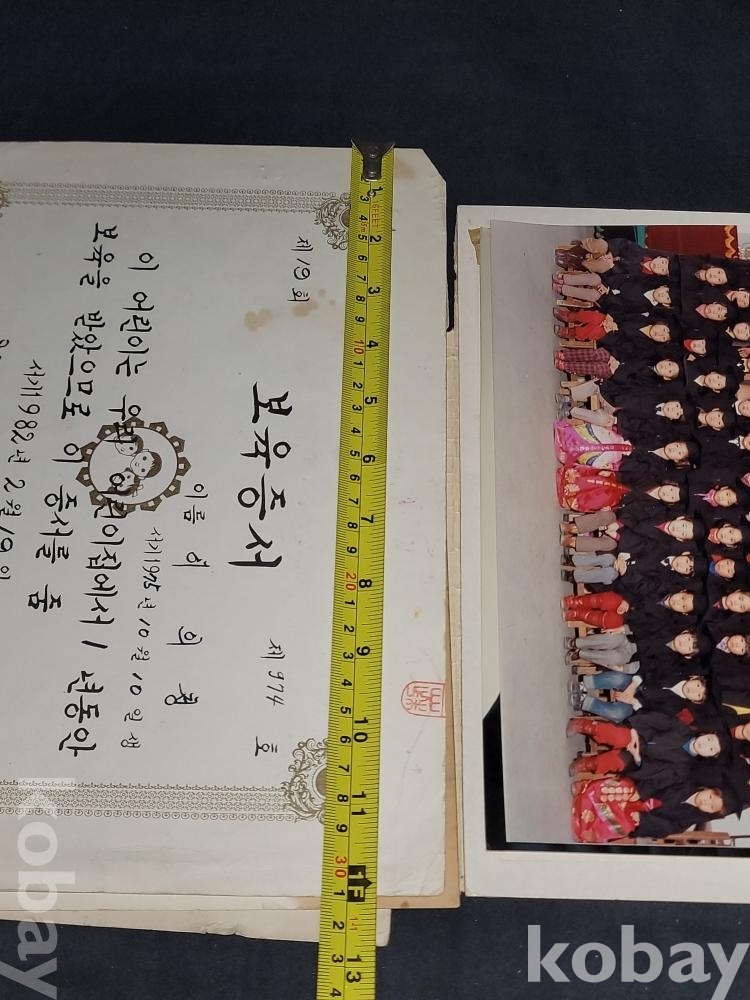 제19회
제974호
보육증서
이름 허 희 정
서기1975년 10월 10일생
이 어린이는 우리 어린이집에서 1년동안
보육을 받았으므로 이 증서를 줌
서기1982년 2월 19일
kobay
kobay